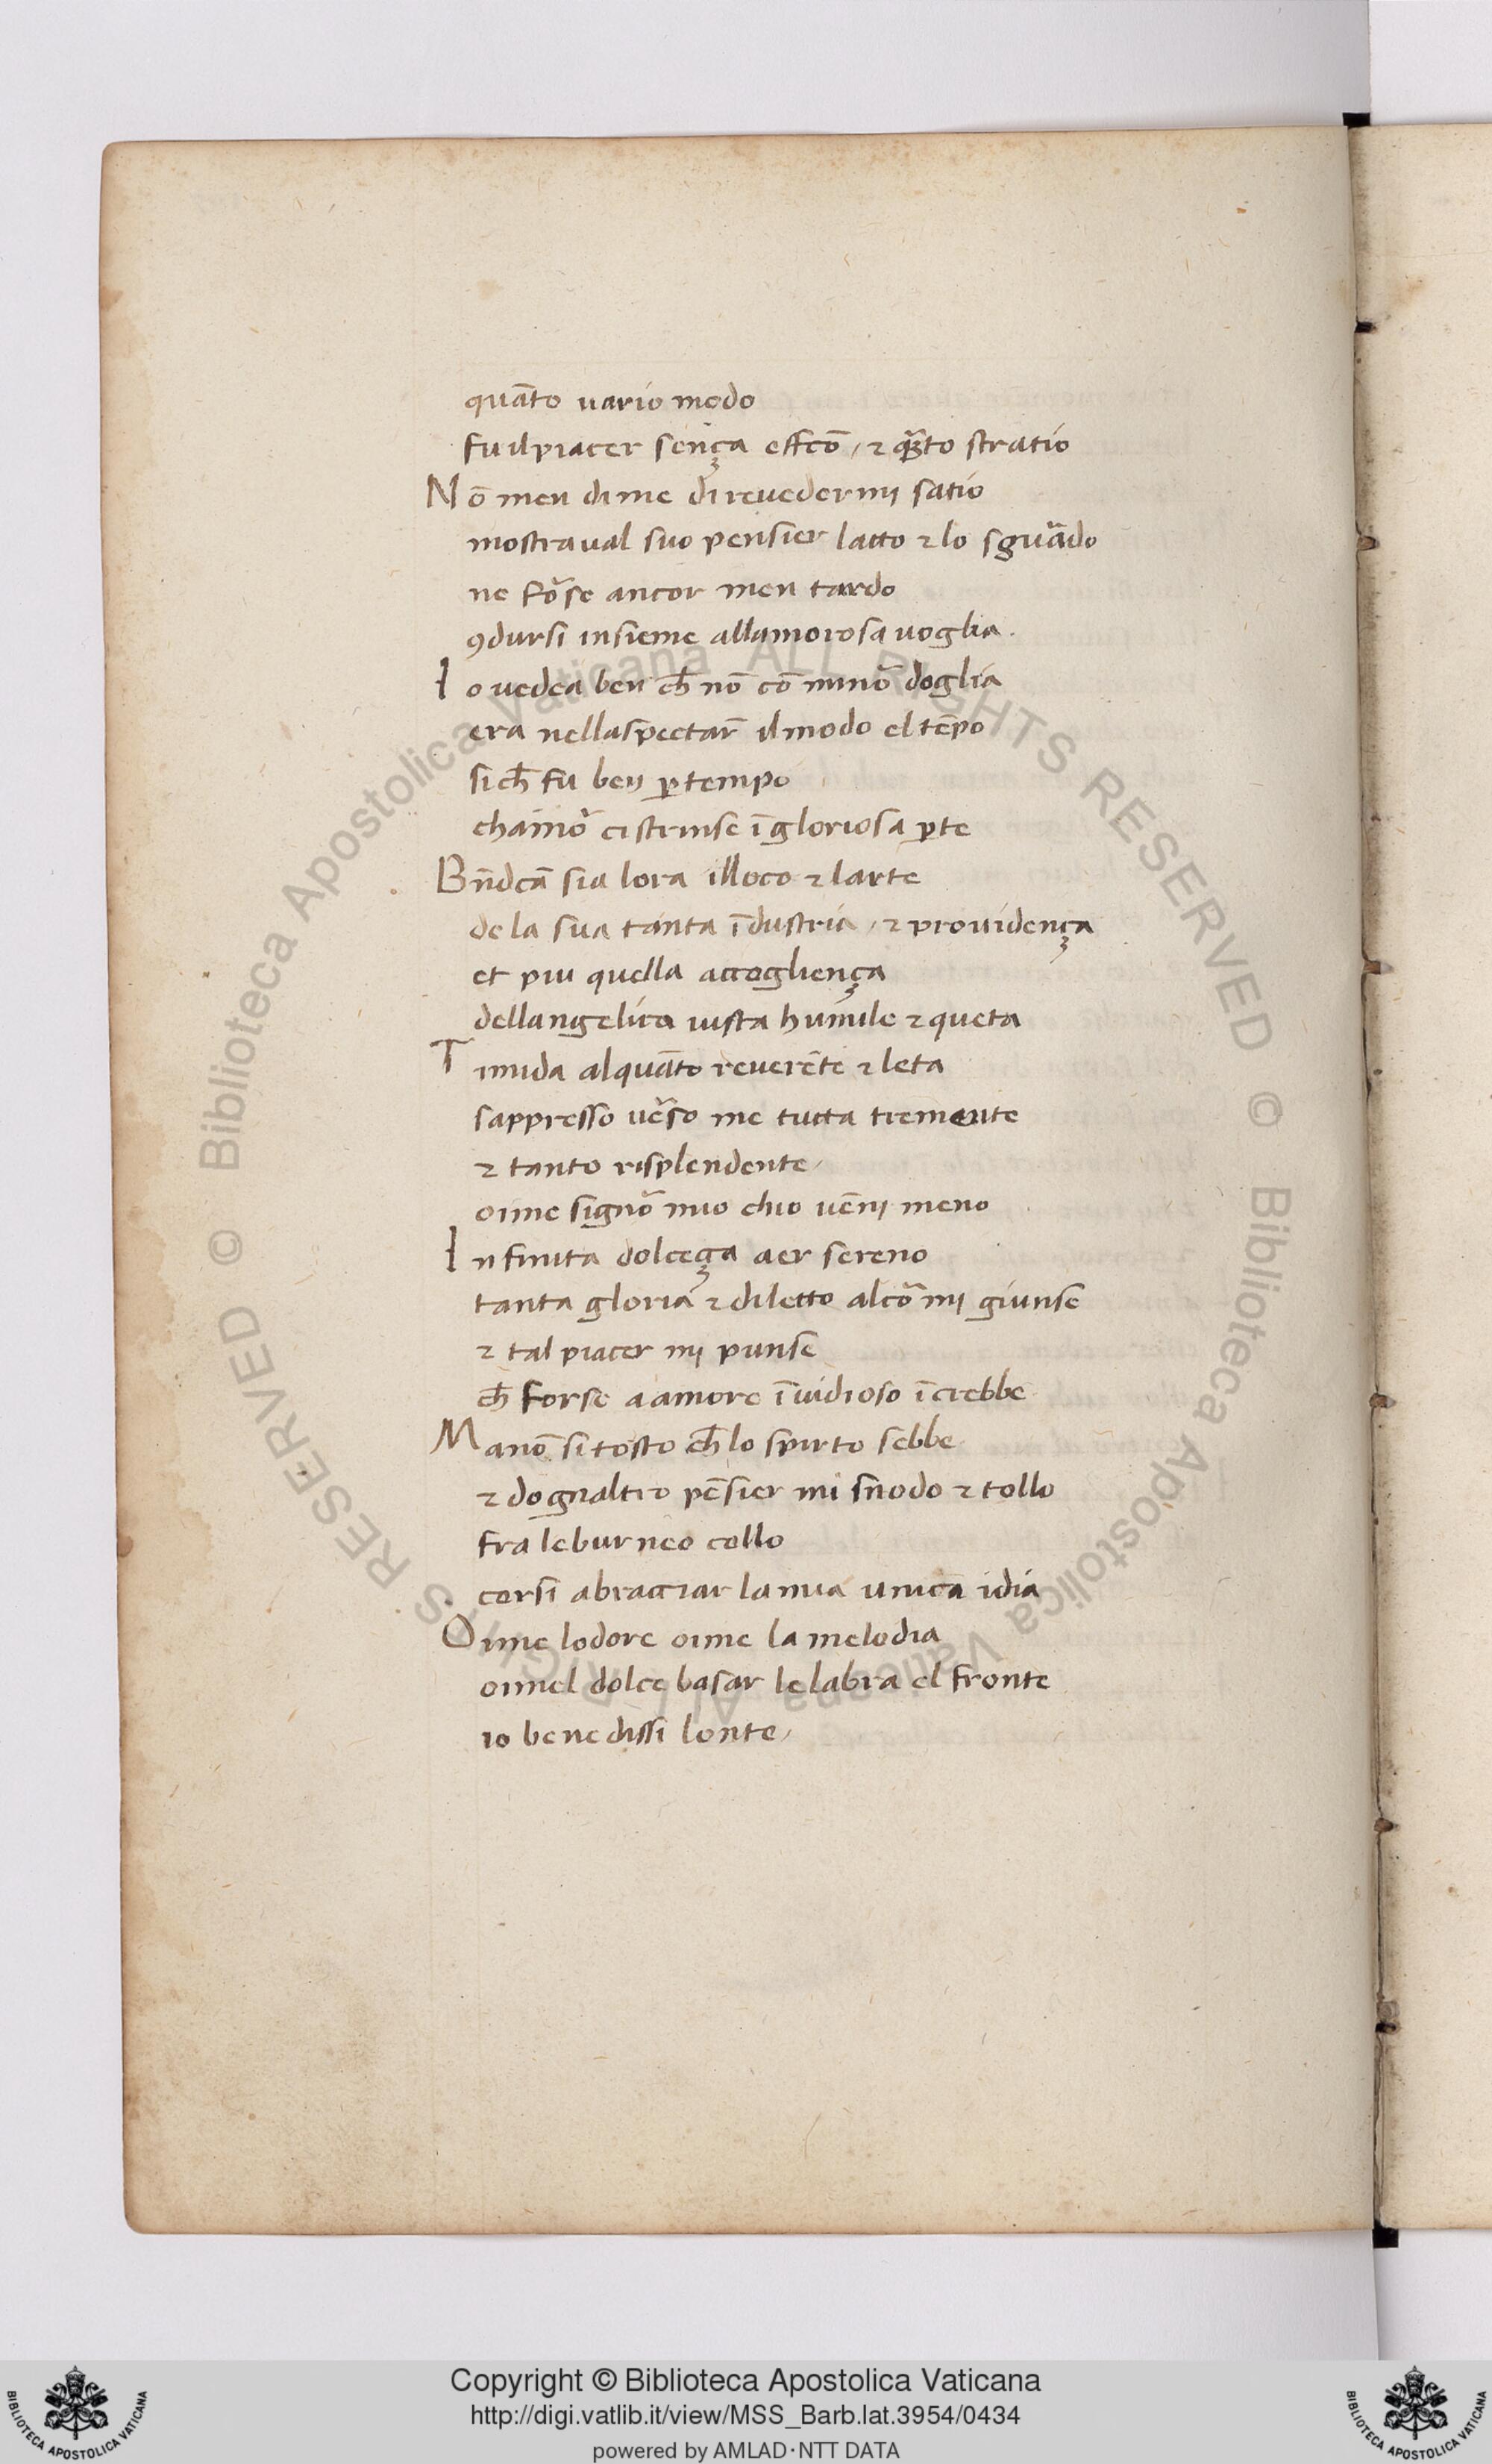 quāto uario modo
fu il piacer senҫa effcō / ⁊ q̄to stratio
Nō men di me di reuedermi satio
mostraual suo pensier latto ⁊ lo sguādo
ne fōse ancor men tardo
ꝯdursi insieme allamorosa uoglia.
Io uedea ben ch̄ nō cō minō doglia
era nellaspectar̄ il modo el tēpo
sich̄ fu ben ꝑ tempo
chamō ci strinse ī gloriosa ꝑte
Bn̄dcā sia lora illoco ⁊ larte
de la sua tanta īdustria / ⁊ prouidenҫa
et piu quella accoglienҫa
dellangelica uista humile ⁊ queta
Timida alquāto reuerēte ⁊ leta
sappresso uēso me tutta tremante
⁊ tanto risplendente /
oime signō mio chio uēni meno
Infinita dolceҫa aer sereno
tanta gloria ⁊ diletto alcō mi giunse
⁊ tal piacer mi punse
ch̄ forse a amore īuidioso īcrebbe
Ma nō si tosto ch̄ lo spirto sebbe
⁊ dognaltro pēsier mi snodo ⁊ tollo
fra leburneo collo
corsi abracciar la mia unica idia
Oime lodore oime la melodia
oimel dolce basar le labra el fronte
io benedissi lonte /
Copyright © Biblioteca Apostolica Vaticana
http://digi.vatlib.it/view/MSS_Barb.lat.3954/0434
powered by AMLAD·NTT DATA
BIBLIOTECA APOSTOLICA VATICANA
BIBLIOTECA APOSTOLICA VATICANA
© Biblioteca Apostolica Vaticana ALL RIGHTS RESERVED
© Biblioteca Apostolica Vaticana ALL RIGHTS RESERVED